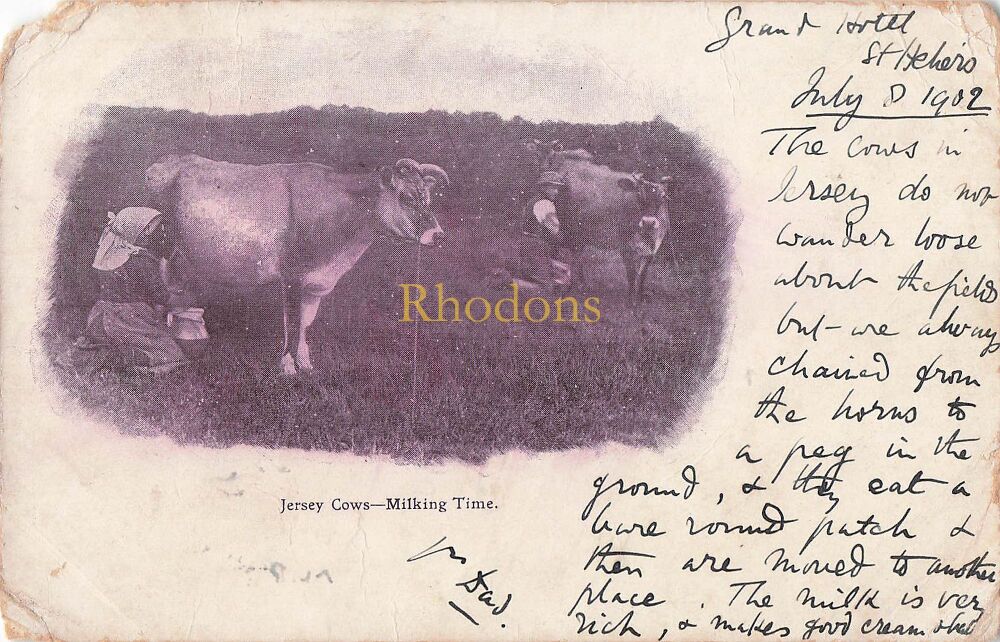 Grand Hotel
St Heliers
July 8 1902
The cows in
Jersey do not
wander loose
about the fields
but are always
chained from
the horns to
a peg in the
ground, & they eat a
bare round patch &
then are moved to another
place. The milk is very
rich, & makes good cream &
Dad.
Jersey Cows—Milking Time.
Rhodons